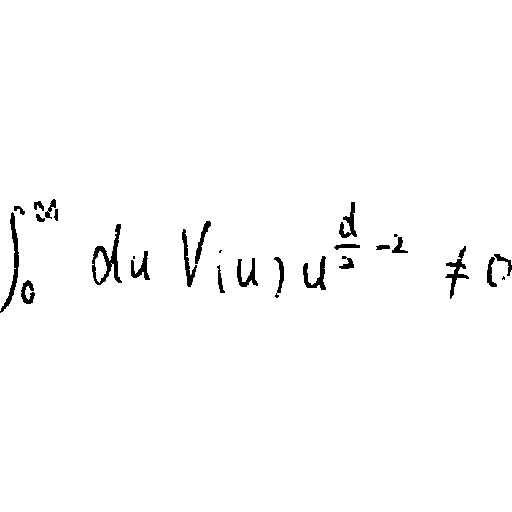 \int_0^\infty du V(u) u^{\frac{d}{2}-2} \neq 0